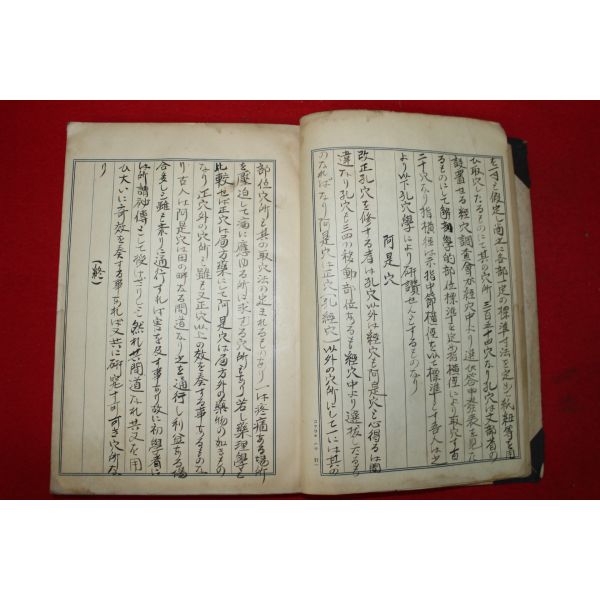 を一寸と假定し尚ほ各部一定の標準寸法を定め紙紐等を用
ひ取穴したるものにて其の穴所三百五十四穴なり孔穴は文部省の
設置せる經穴調査會が經穴中より選択答申發表を見た
るものにして解剖學的部位標準を定め指横徑により取穴す百
二十穴なり指横徑は示指中節横徑を以て標準とす吾人は之
より以下孔穴學により研鑽せんとするものなり
阿是穴
改正孔穴を修する者は孔穴以外は經穴も阿是穴と心得るは間
違なり孔穴も三四の移動部位あるも經穴中より選抜したるも
のなればなり阿是穴は正穴(孔經穴)以外の穴所にして一には其の
部位穴所も其の取穴法の定まれるものなり一は疼痛ある場所
を壓迫して痛に應ゆる所に求する穴所もあり若し藥理學と
比較せば正穴は局方藥にて阿是穴は局方外の藥物の如きもの
なり正穴外の穴所と雖も又正穴以上の効を奏する事もあるものな
り古人は阿是穴は田の畔なる間道なり之を通行し利益ある場
合多しと雖も余りに通行すれば害を及す事あり故に初學者に
は所謂神傳として授けざりしと然れ共間道なれ共又を用
ひ大いに奇效を奏する事あれば又共に研究す可き穴所な
り
(終)